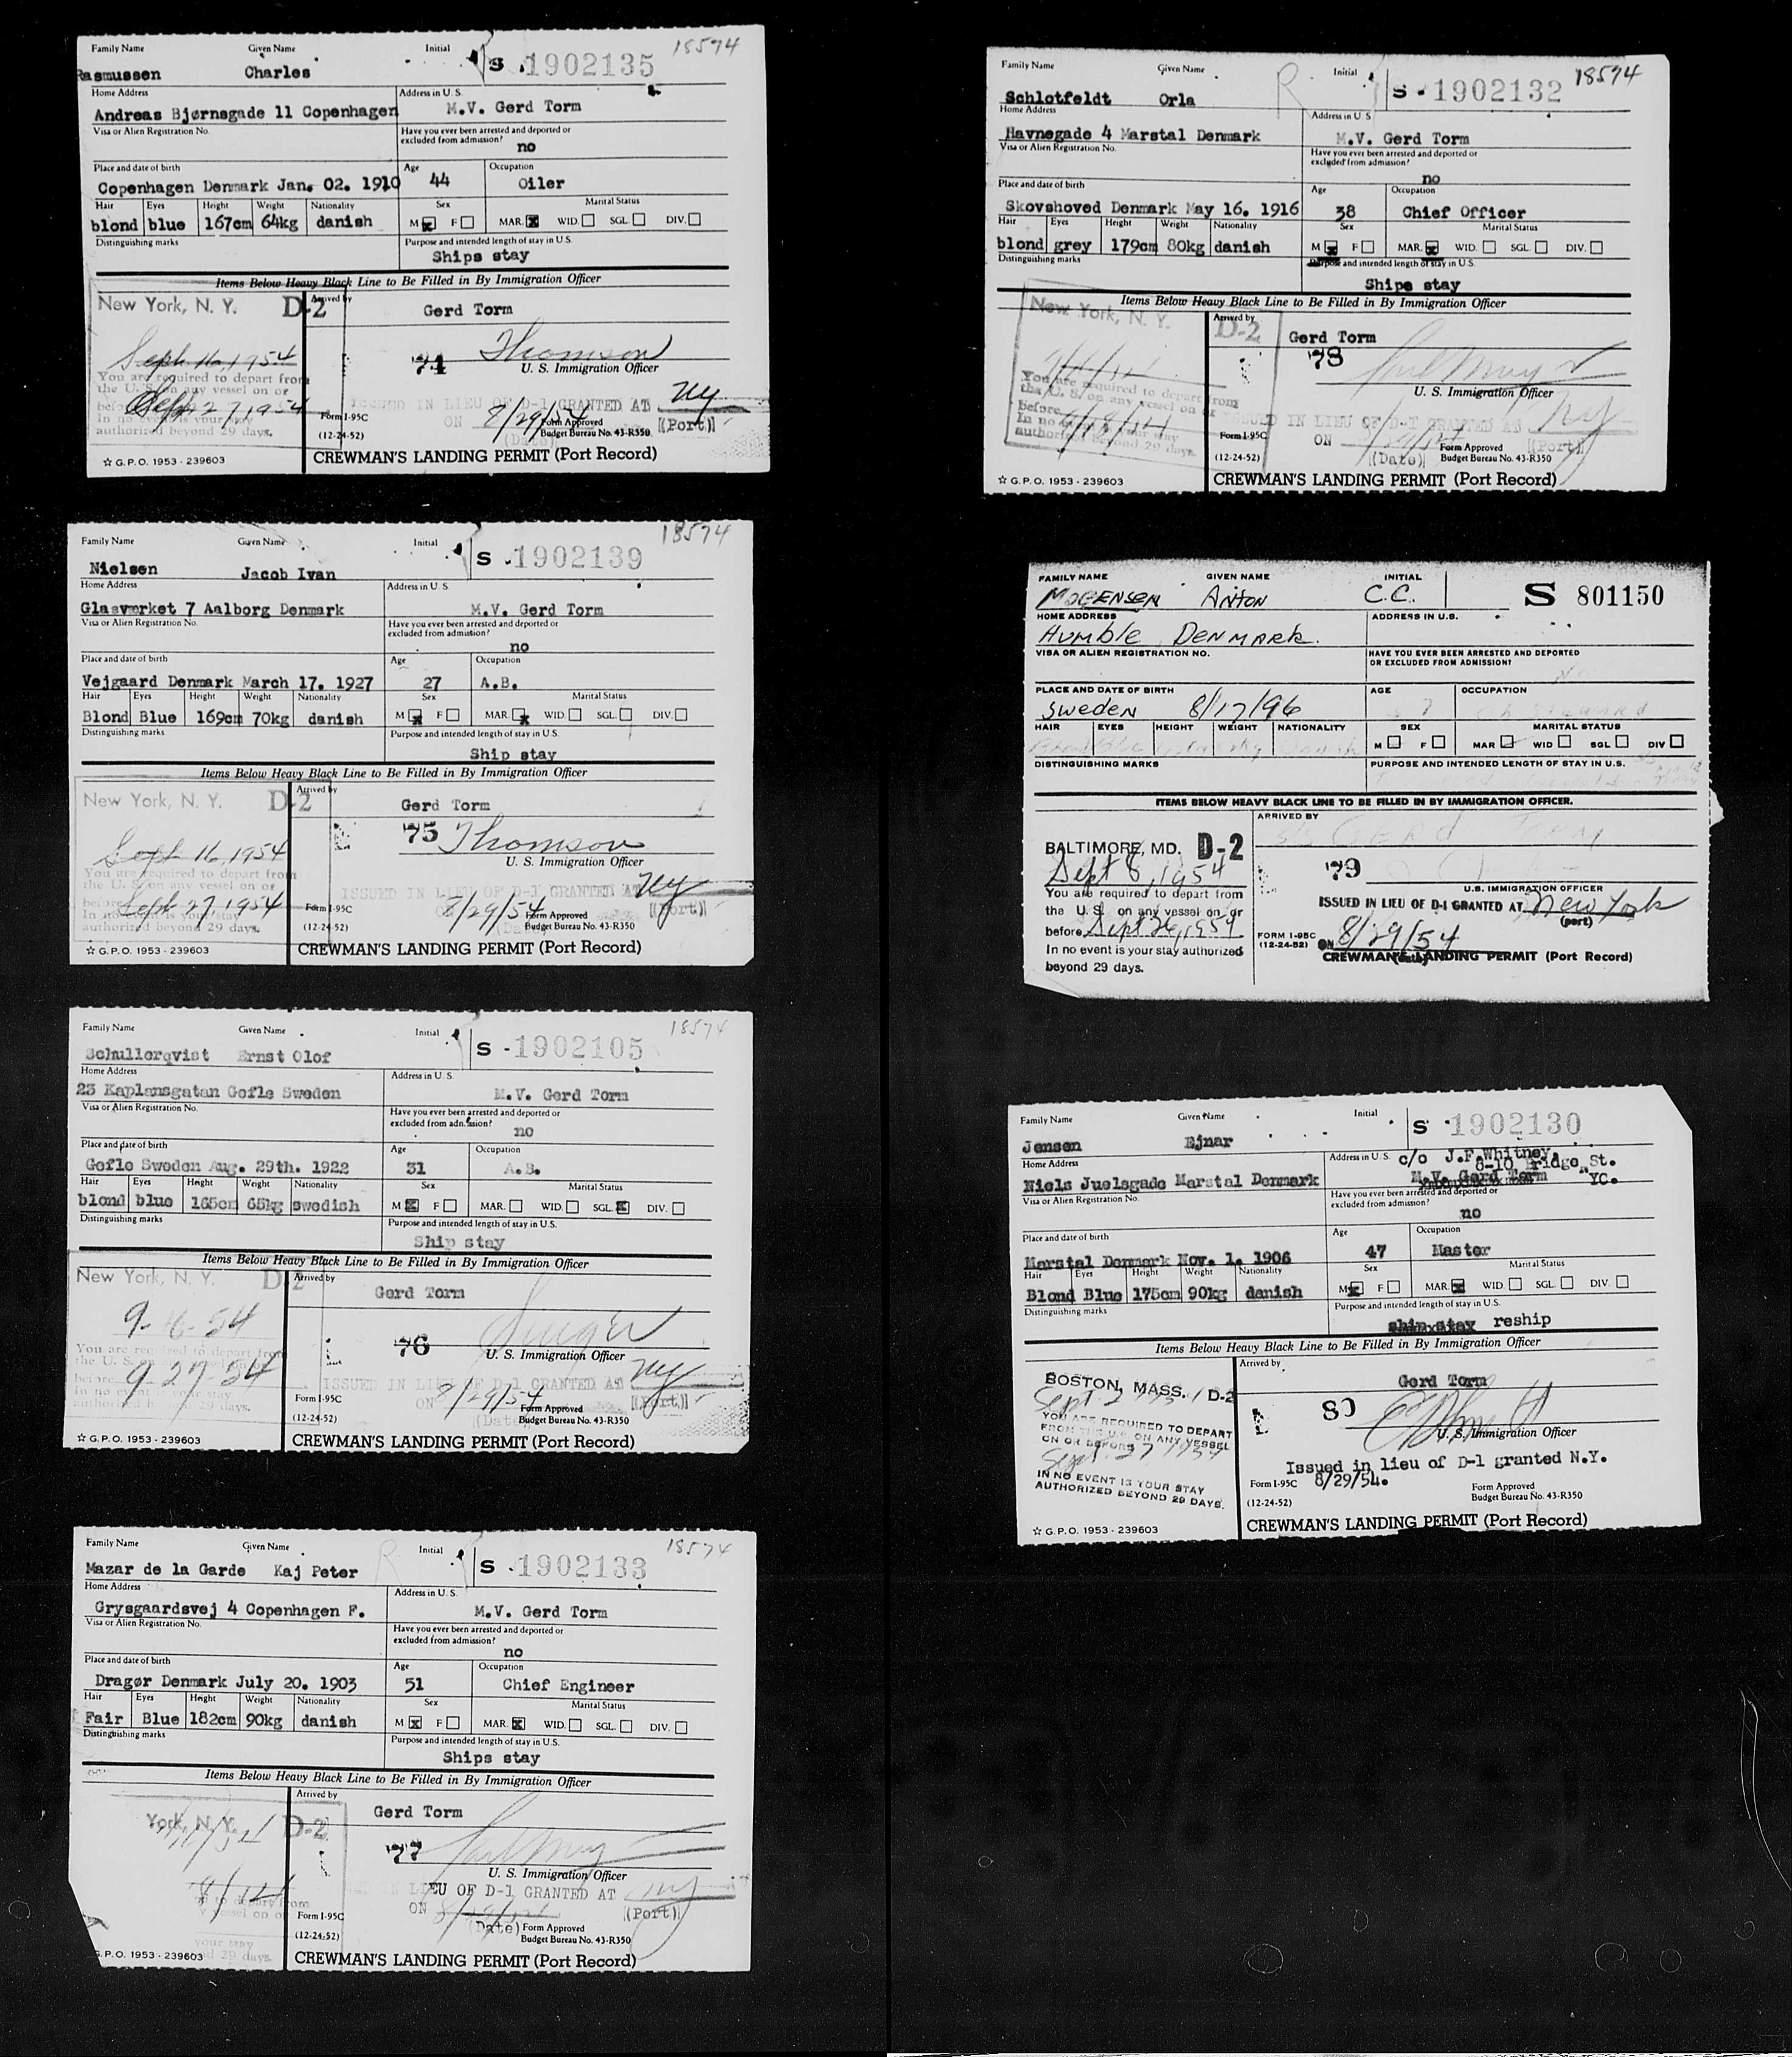 Family Name Given Name Initial S 1902135 18574
Rasmussen Charles
Home Address Address in U. S.
Andreas Bjørnsgade 11 Copenhagen M.V. Gerd Torm
Visa or Alien Registration No. Have you ever been arrested and deported or excluded from admission?
no
Place and date of birth Age Occupation
Copenhagen Denmark Jan. 02. 1910 44 Oiler
Hair Eyes Height Weight Nationality Sex Marital Status
blond blue 167cm 64kg danish M x F MAR. x WID. SGL DIV.
Distinguishing marks Purpose and intended length of stay in U.S.
Ships stay
Items Below Heavy Black Line to Be Filled in By Immigration Officer
New York, N. Y. D-2 Arrived by
Gerd Torm
Sept 16, 1954 74 Thomson
You are required to depart from U. S. Immigration Officer
the U. S. on any vessel on or
before Sept 27, 1954 ISSUED IN LIEU OF D-1 GRANTED AT NY
In no event is your stay Form I-95C ON 8/29/54 Form Approved (Port)
authorized beyond 29 days. (12-24-52) (Date) Budget Bureau No. 43-R350
☆ G.P.O. 1953 - 239603 CREWMAN'S LANDING PERMIT (Port Record)
Family Name Given Name Initial S 1902139 18574
Nielsen Jacob Ivan
Home Address Address in U. S.
Glasværket 7 Aalborg Denmark M.V. Gerd Torm
Visa or Alien Registration No. Have you ever been arrested and deported or excluded from admission?
no
Place and date of birth Age Occupation
Vejgaard Denmark March 17. 1927 27 A.B.
Hair Eyes Height Weight Nationality Sex Marital Status
Blond Blue 169cm 70kg danish M x F MAR. x WID. SGL. DIV.
Distinguishing marks Purpose and intended length of stay in U.S.
Ship stay
Items Below Heavy Black Line to Be Filled in By Immigration Officer
New York, N. Y. D-2 Arrived by
Gerd Torm
Sept 16, 1954 75 Thomson
You are required to depart from U. S. Immigration Officer
the U. S. on any vessel on or
before Sept 27 1954 ISSUED IN LIEU OF D-1 GRANTED AT NY
In no event is your stay Form I-95C 8/29/54 Form Approved (Port)
authorized beyond 29 days. (12-24-52) (Date) Budget Bureau No. 43-R350
☆ G.P.O. 1953 - 239603 CREWMAN'S LANDING PERMIT (Port Record)
Family Name Given Name Initial S - 1902105 18574
Schullerqvist Ernst Olof
Home Address Address in U. S.
23 Kaplansgatan Gefle Sweden M.V. Gerd Torm
Visa or Alien Registration No. Have you ever been arrested and deported or excluded from admission?
no
Place and date of birth Age Occupation
Gefle Sweden Aug. 29th. 1922 31 A.B.
Hair Eyes Height Weight Nationality Sex Marital Status
blond blue 165cm 65kg swedish M x F MAR. WID. SGL. x DIV.
Distinguishing marks Purpose and intended length of stay in U.S.
Ship stay
Items Below Heavy Black Line to Be Filled in By Immigration Officer
New York, N. Y. D-2 Arrived by
Gerd Torm
9-16-54 76
You are required to depart from U. S. Immigration Officer
the U. S. on any vessel on or
before 9-27-54 ISSUED IN LIEU OF D-1 GRANTED AT NY
In no event is your stay Form I-95C ON 8/29/54 Form Approved (Port)
authorized beyond 29 days. (12-24-52) (Date) Budget Bureau No. 43-R350
☆ G.P.O. 1953 - 239603 CREWMAN'S LANDING PERMIT (Port Record)
Family Name Given Name R Initial S 1902133 18574
Mazar de la Garde Kaj Peter
Home Address Address in U. S.
Grysgaardsvej 4 Copenhagen F. M.V. Gerd Torm
Visa or Alien Registration No. Have you ever been arrested and deported or excluded from admission?
no
Place and date of birth Age Occupation
Dragør Denmark July 20. 1903 51 Chief Engineer
Hair Eyes Height Weight Nationality Sex Marital Status
Fair Blue 182cm 90kg danish M x F MAR. x WID. SGL. DIV.
Distinguishing marks Purpose and intended length of stay in U.S.
Ships stay
Items Below Heavy Black Line to Be Filled in By Immigration Officer
York, N. Y. D-2 Arrived by
Gerd Torm
77
U. S. Immigration Officer
IN LIEU OF D-1 GRANTED AT NY
Form I-95C ON (Port)
(12-24-52) (Date) Form Approved
your stay Budget Bureau No. 43-R350
G.P.O. 1953 - 239603 29 days. CREWMAN'S LANDING PERMIT (Port Record)
Family Name Given Name R Initial S - 1902132 18574
Schlotfeldt Orla
Home Address Address in U. S
Havnegade 4 Marstal Denmark M.V. Gerd Torm
Visa or Alien Registration No. Have you ever been arrested and deported or excluded from admission?
no
Place and date of birth Age Occupation
Skovshoved Denmark May 16. 1916 38 Chief Officer
Hair Eyes Height Weight Nationality Sex Marital Status
blond grey 179cm 80kg danish M x F MAR. x WID. SGL. DIV.
Distinguishing marks Purpose and intended length of stay in U.S.
Ships stay
Items Below Heavy Black Line to Be Filled in By Immigration Officer
New York, N. Y. D-2 Arrived by
Gerd Torm
78
You are required to depart from U. S. Immigration Officer
the U. S. on any vessel on or
before ISSUED IN LIEU OF D-1 GRANTED AT NY
In no event is your stay Form I-95C ON Form Approved (Port)
authorized beyond 29 days. (12-24-52) (Date) Budget Bureau No. 43-R350
☆ G.P.O. 1953 - 239603 CREWMAN'S LANDING PERMIT (Port Record)
FAMILY NAME GIVEN NAME INITIAL S 801150
MOGENSEN ANTON C.C.
HOME ADDRESS ADDRESS IN U.S.
HUMBLE DENMARK.
VISA OR ALIEN REGISTRATION NO. HAVE YOU EVER BEEN ARRESTED AND DEPORTED OR EXCLUDED FROM ADMISSION?
No
PLACE AND DATE OF BIRTH AGE OCCUPATION
SWEDEN 8/17/96 Ch Steward
HAIR EYES HEIGHT WEIGHT NATIONALITY SEX MARITAL STATUS
Danish M F MAR WID SGL DIV
DISTINGUISHING MARKS PURPOSE AND INTENDED LENGTH OF STAY IN U.S.
ITEMS BELOW HEAVY BLACK LINE TO BE FILLED IN BY IMMIGRATION OFFICER.
ARRIVED BY
GERD TORM
BALTIMORE, MD. D-2
Sept 8, 1954 79
You are required to depart from U.S. IMMIGRATION OFFICER
the U. S. on any vessel on or ISSUED IN LIEU OF D-1 GRANTED AT New York
before Sept 26, 1954 (port)
In no event is your stay authorized FORM I-95C (12-24-52) ON 8/29/54
beyond 29 days. (date) CREWMAN'S LANDING PERMIT (Port Record)
Family Name Given Name Initial S 1902130
Jensen Ejnar
Home Address Address in U. S. c/o J.F.Whitney,
8-10 Bridge St.
Niels Juelsgade Marstal Denmark M.V. Gerd Torm YC.
Visa or Alien Registration No. Have you ever been arrested and deported or excluded from admission?
no
Place and date of birth Age Occupation
Marstal Denmark Nov. 1. 1906 47 Master
Hair Eyes Height Weight Nationality Sex Marital Status
Blond Blue 175cm 90kg danish M x F MAR. x WID. SGL. DIV.
Distinguishing marks Purpose and intended length of stay in U.S.
ship stay reship
Items Below Heavy Black Line to Be Filled in By Immigration Officer
Arrived by
Gerd Torm
BOSTON, MASS. D-2
Sept 2 1954 80
YOU ARE REQUIRED TO DEPART
FROM THE U.S. ON ANY VESSEL U. S. Immigration Officer
ON OR BEFORE
Sept. 27 1954 Issued in lieu of D-1 granted N.Y.
IN NO EVENT IS YOUR STAY Form I-95C 8/29/54. Form Approved
AUTHORIZED BEYOND 29 DAYS. (12-24-52) Budget Bureau No. 43-R350
☆ G.P.O. 1953 - 239603 CREWMAN'S LANDING PERMIT (Port Record)